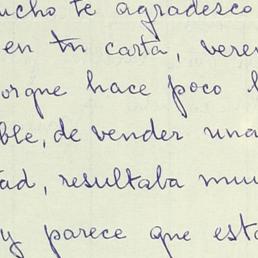 ucho te agradesco
en tu carta, veren
orque hace poco
ble, de vender una
dad, resultaba mu
y parece que est